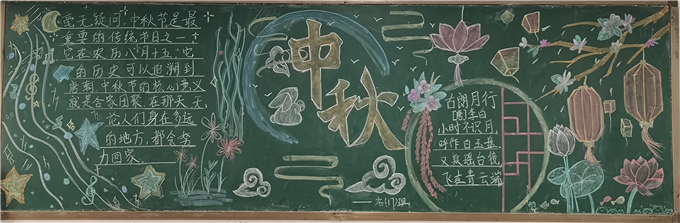 毫无疑问,中秋节是最
重要的传统节日之一
它在农历八月十五,它
的历史可以追溯到
唐朝,中秋节的核心意义
就是合家团聚,在那天,无
论人们身在多远
的地方,都会努
力回家
中秋
古朗月行
唐 李白
小时不识月,
呼作白玉盘
又疑瑶台镜
飞在青云端